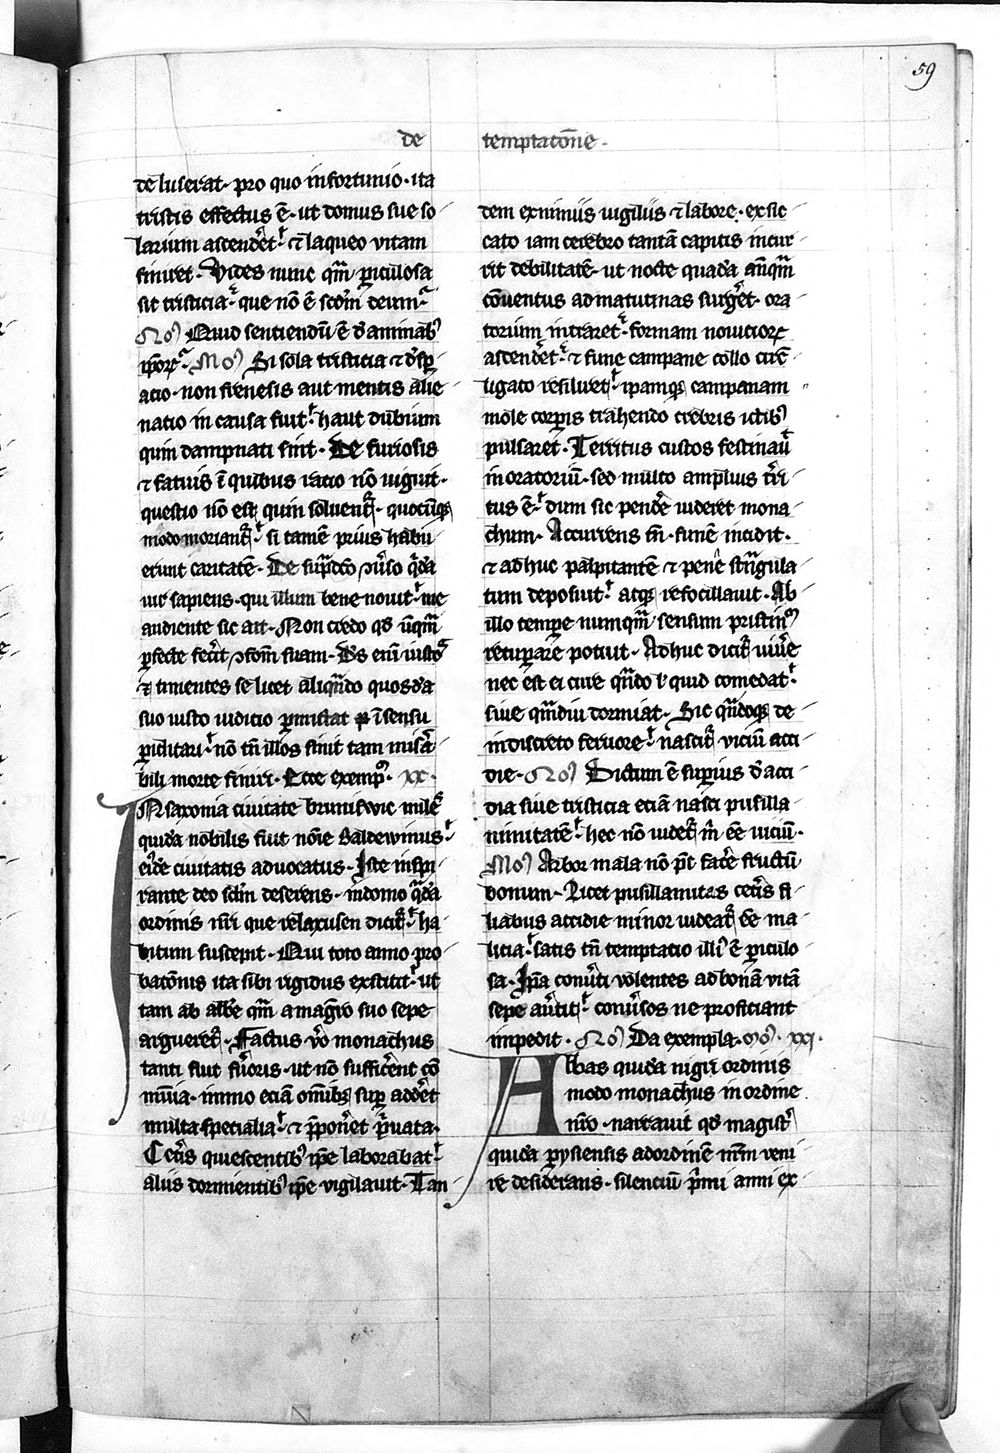 59
de temptatōne.
de luserat. pro quo infortunio. ita
tristis effectus ē. ut domus sue so
larium ascendēt. ⁊ laqueo vitam
finiret. Vides nunc qm̄ piculosa
sit tristicia. que nō ē scdm deum.
No Quid sentiendū ē d' aīabꝰ
ipoꝝ. Mo Si sola tristicia ⁊ dꝰsp
atio. non frenesis aut mentis alie
natio in causa fuit. haut dubium
quin dampnati sint. De furiosis
⁊ fatuis ī quibus racio nō viguit.
questio nō est quin soluent̄. quocūqꝫ
modo moriant̄. si tamē prius habu
erunt caritatē. De sup̄dco ɔūso q̄da
vir sapiens. qui illum bene novit. me
audiente sic ait. Non credo qd ūqm̄
pfecte fecit ɔfom suam. Ds eni iustos
⁊ timentes se licet aliqn̄do quosda
suo iusto iudicio pmittat ī sensu
piclitari. nō tn̄ illos sinit tam misa
bili morte finiri. Ecce exemp. xx.
IN saxonia civitate brunswic mile
quida nobilis fuit noīe Baldewinus.
eide civitatis advocatus. Iste inspi
rante deo sclm deserens. in domo q̄da
ordinis nr̄i que relaxusen dicit̄. ha
bitum suscepit. Qui toto anno pro
batōnis ita sibi rigidus exstitit. ut
tam ab abbe qm̄ a magro suo sepe
argueret̄. Factus vo monachus
tanti fuit fuoris. ut nō sufficent co
mūia. immo eciā omībꝫ sup addet
multa specialia. ⁊ pponet pvata.
Cetis quiescentibꝰ ipe laborabat.
aliis dormientibꝰ ipe vigilavit. Tan
dem eximiis vigiliis ⁊ labore. exsic
cato iam cerebro tantā capitis incur
rit debilitatē. ut nocte quada anqm̄
cōventus ad matutinas surget. ora
torium intraret. formam noviciorꝝ
ascendet. ⁊ fune campane collo circū
ligato resiluit. ipamqꝫ campanam
mole corpis trahendo crebris ictibꝰ
pulsaret. Territus custos festinavit
in oratoriū. sed multo amplius tri
tus ē. dum sic pende videret mona
chum. Accurrens tn̄. funē incidit.
⁊ adhuc palpitantē ⁊ pene stn̄gula
tum deposuit. atqꝫ refocillavit. Ab
illo tempe numqm̄ sensum pristinū
recuperare potuit. Adhuc dicit̄ vive
nec est ei cure qn̄do l' quid comedat.
sive qmdiu dormiat. Sic qn̄doqꝫ de
indiscreto fervore. nascit̄ viciū acci
die. No Dictum ē supius d' acci
dia sive tristicia eciā nasci pusilla
nimitatē. hec nō videt̄ m̄ ee viciū.
Mo Arbor mala nō pt̄ face fructū
bonum. Licet pusillanitas cetis fi
liabus accidie minor videat̄ ee ma
licia. satis tn̄ temptatio illiꝰ ē piculo
sa. Ipa convti volentes ad bonā vitā
sepe avtit. convsos ne proficiant
impedit. No Da exempla. Mo. xxi.
Abbas quida nigri ordinis
modo monachus in ordine
nr̄o. narravit qd magist̄
quida pysiensis ad ordinē nrm veni
re desiderans. silenciū pmi anni ex